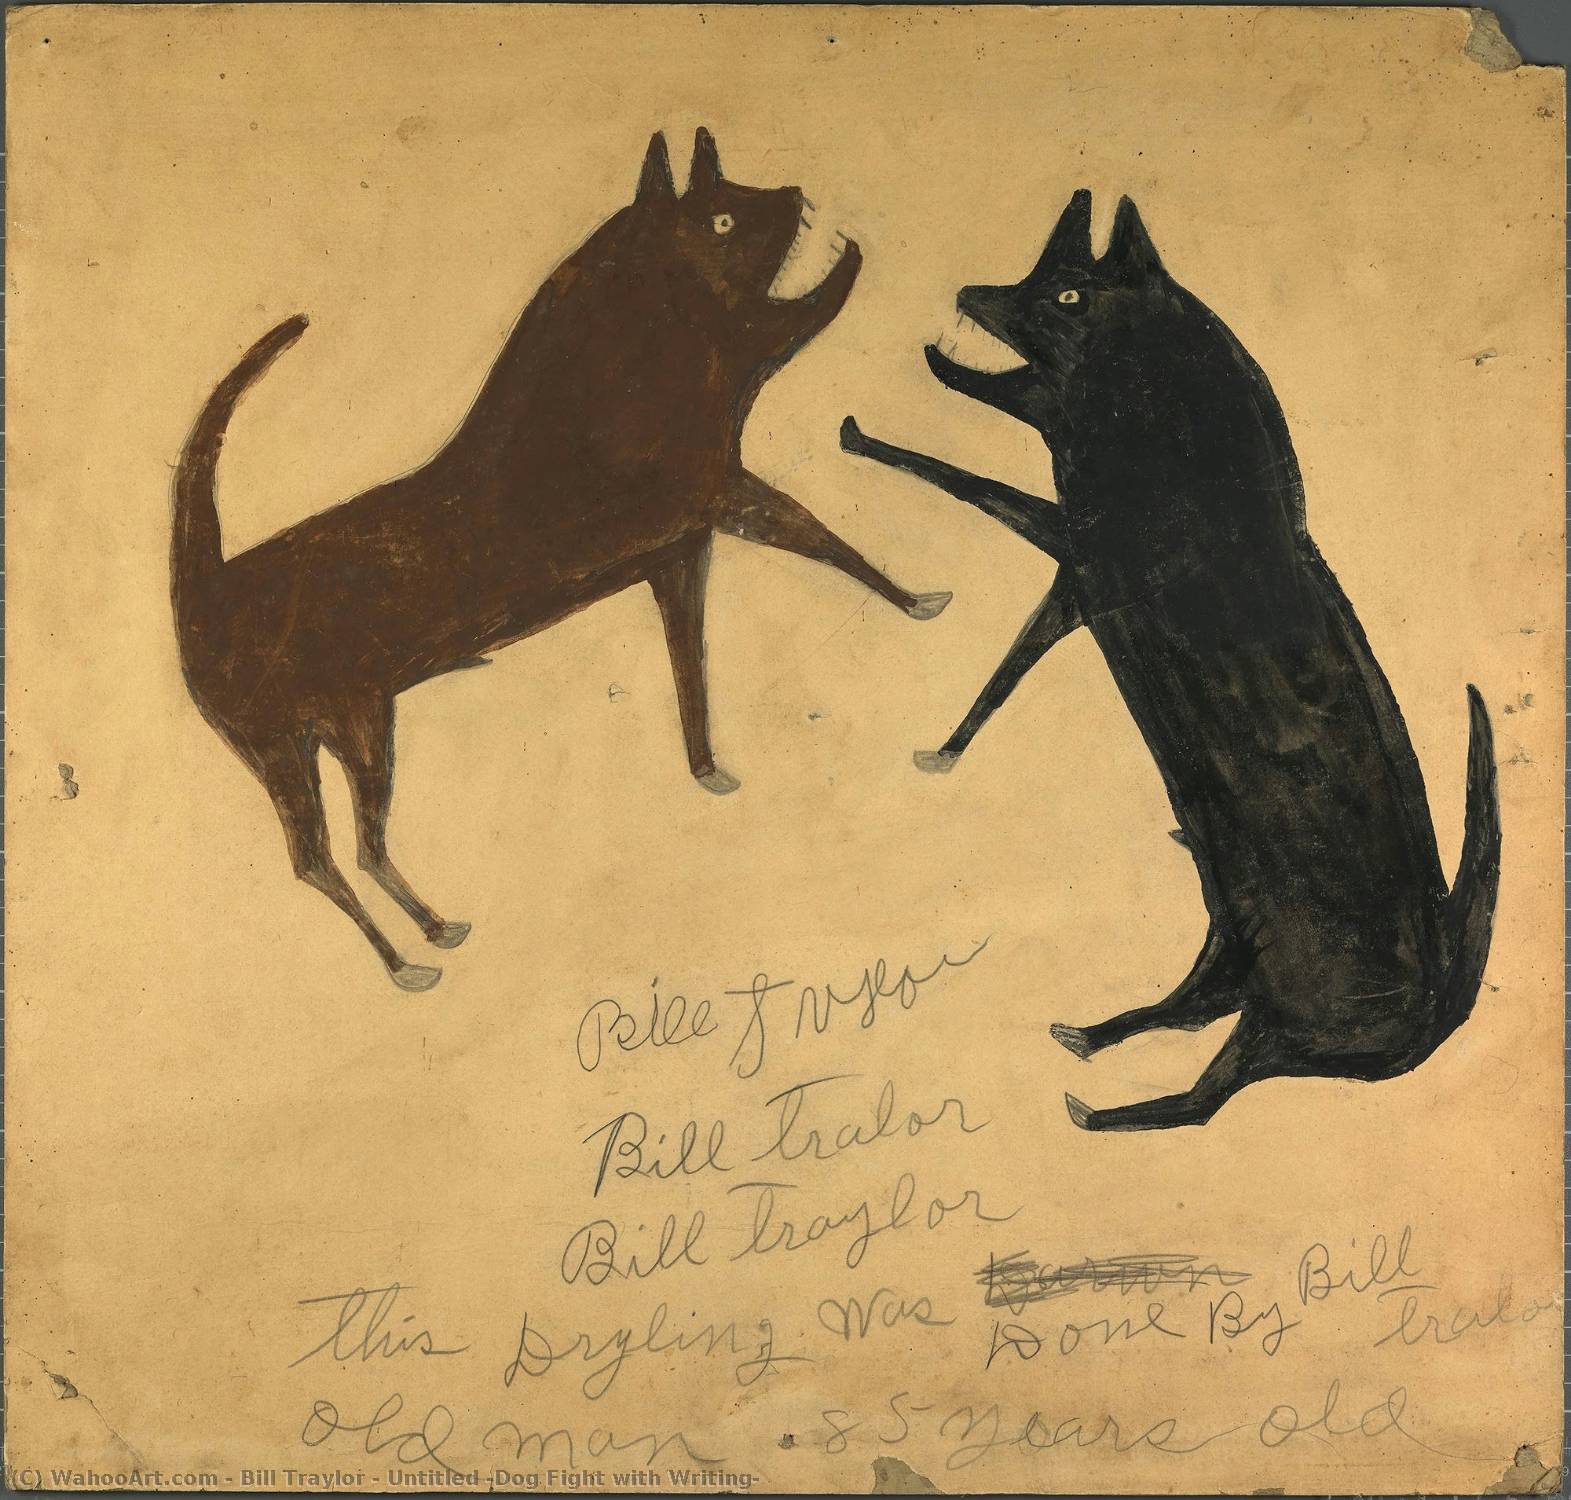 Bill Traylor
Bill Tralor
Bill Traylor
This Dryling was Done By Bill Tralor
old man 85 years old
(C) WahooArt.com - Bill Traylor - Untitled -Dog Fight with Writing-